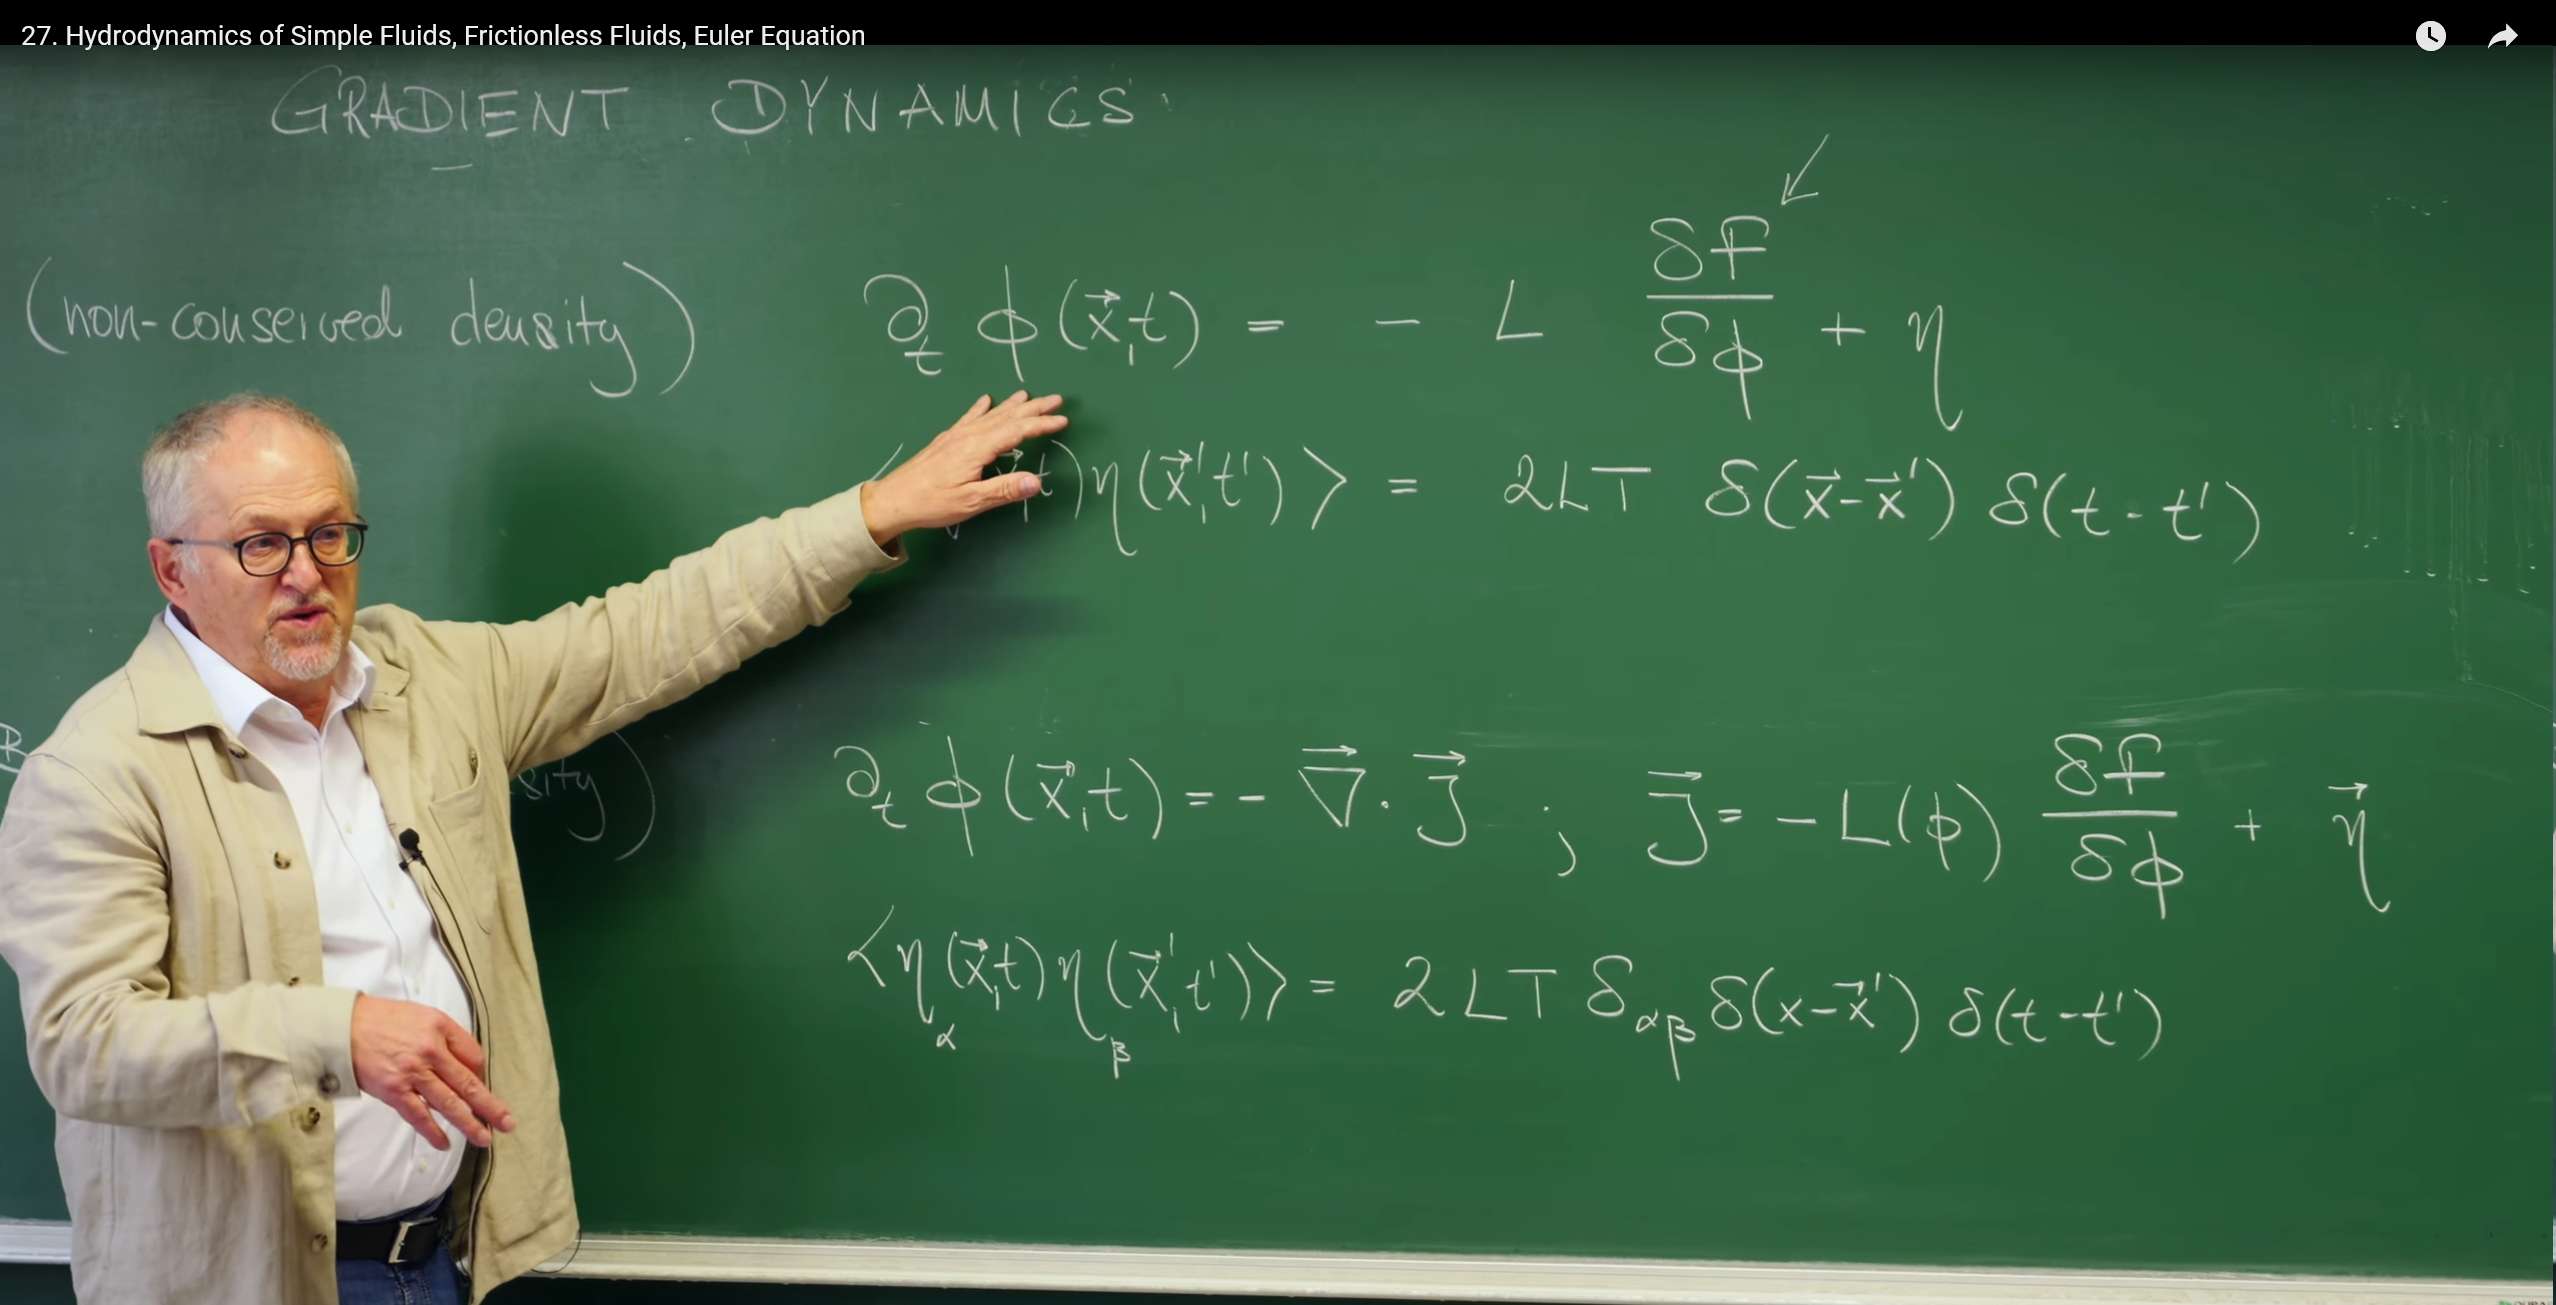 27. Hydrodynamics of Simple Fluids, Frictionless Fluids, Euler Equation
GRADIENT DYNAMICS
(non-conserved density) ∂ₜ ϕ(x⃗,t) = - L δF/δϕ + η
t)η(x⃗',t')⟩ = 2LT δ(x⃗-x⃗') δ(t-t')
sity) ∂ₜ ϕ(x⃗,t) = - ∇⃗·J⃗ ; J⃗ = - L(ϕ) δF/δϕ + η⃗
⟨η_α(x⃗,t)η_β(x⃗',t')⟩ = 2LT δ_αβ δ(x-x⃗') δ(t-t')